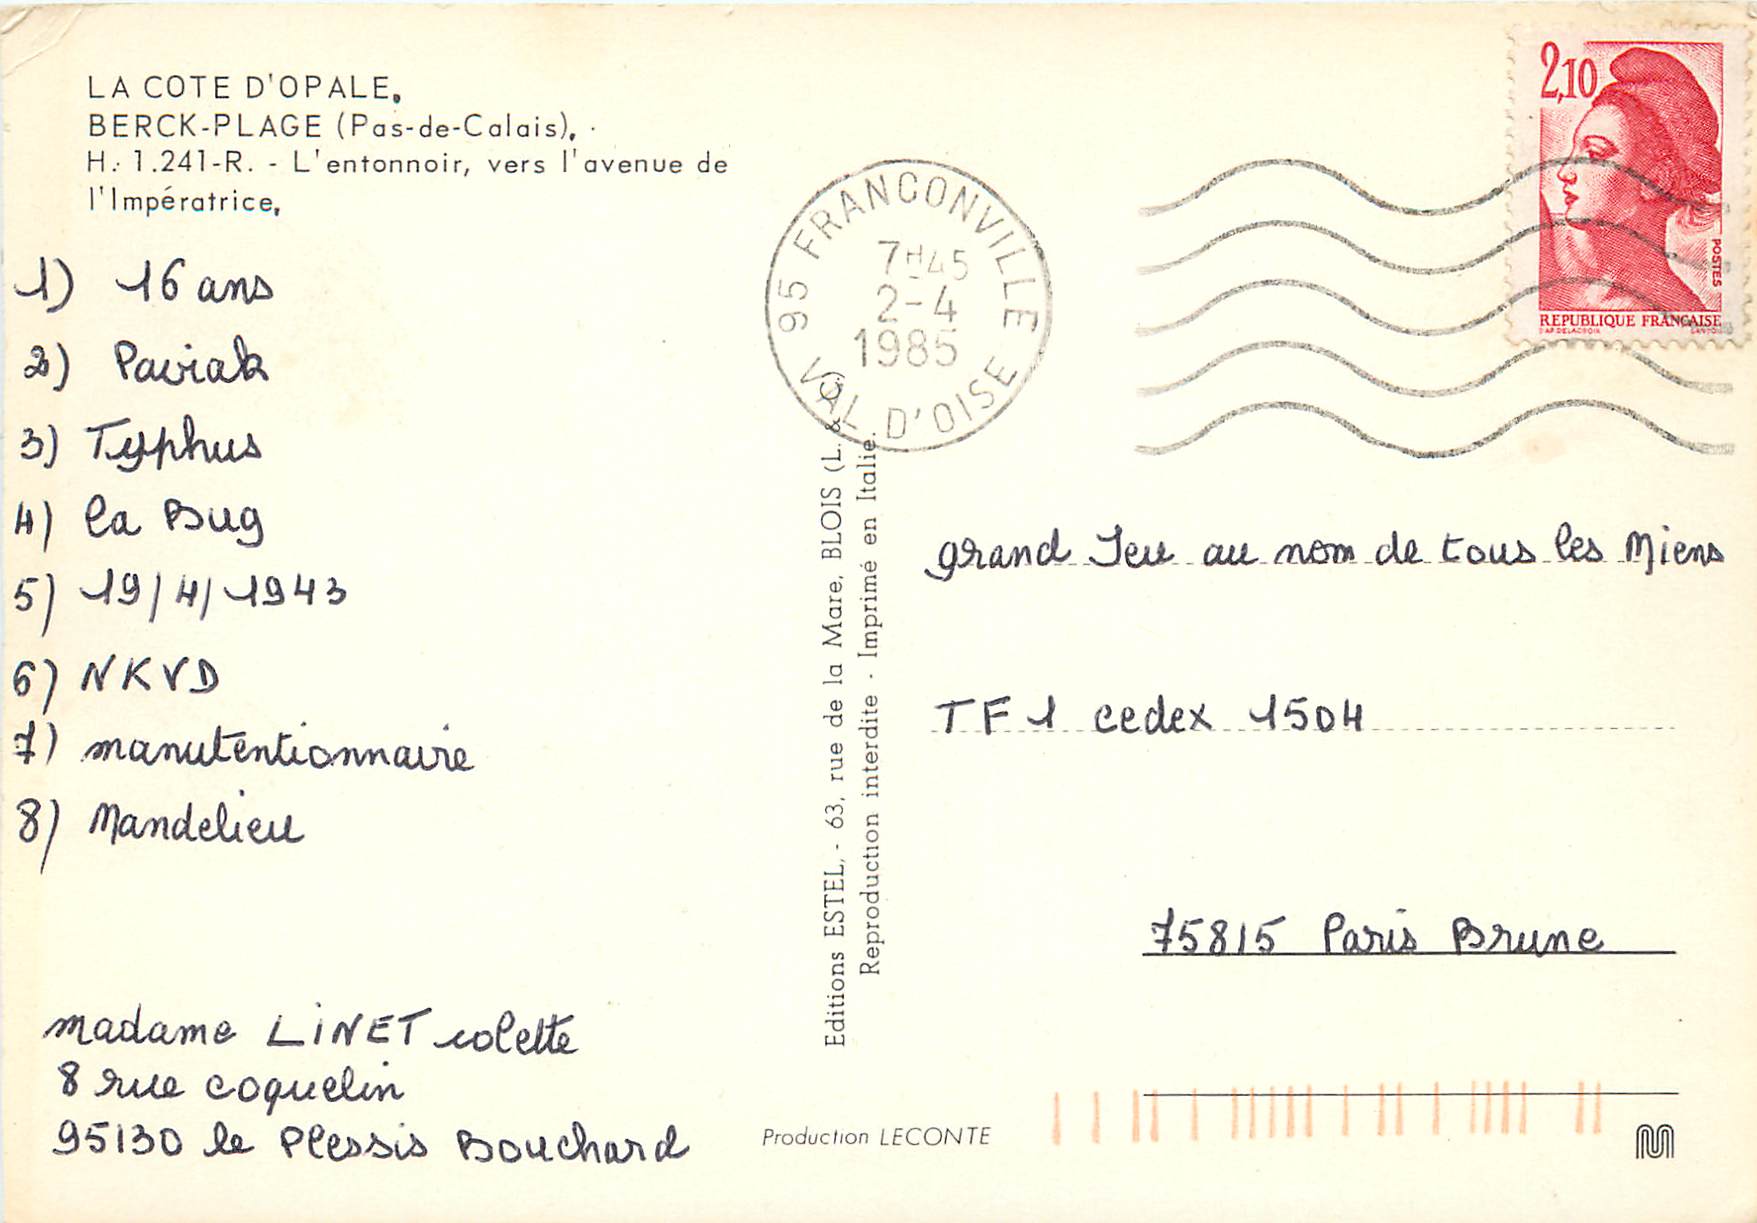 LA COTE D'OPALE.
BERCK-PLAGE (Pas-de-Calais).
H. 1.241-R. - L'entonnoir, vers l'avenue de
l'Impératrice.
1) 16 ans
2) Paviak
3) Typhus
4) la Bug
5) 19/4/1943
6) NKVD
7) manutentionnaire
8) Mandelieu
madame LINET colette
8 rue coquelin
95130 le Plessis Bouchard
Editions ESTEL, - 63, rue de la Mare, BLOIS (L. & C.)
Reproduction interdite - Imprimé en Italie.
Production LECONTE
95 FRANCONVILLE
7H45
2-4
1985
VAL D'OISE
2,10
POSTES
REPUBLIQUE FRANÇAISE
grand Jeu au nom de tous les Miens
TF1 cedex 1504
75815 Paris Brune